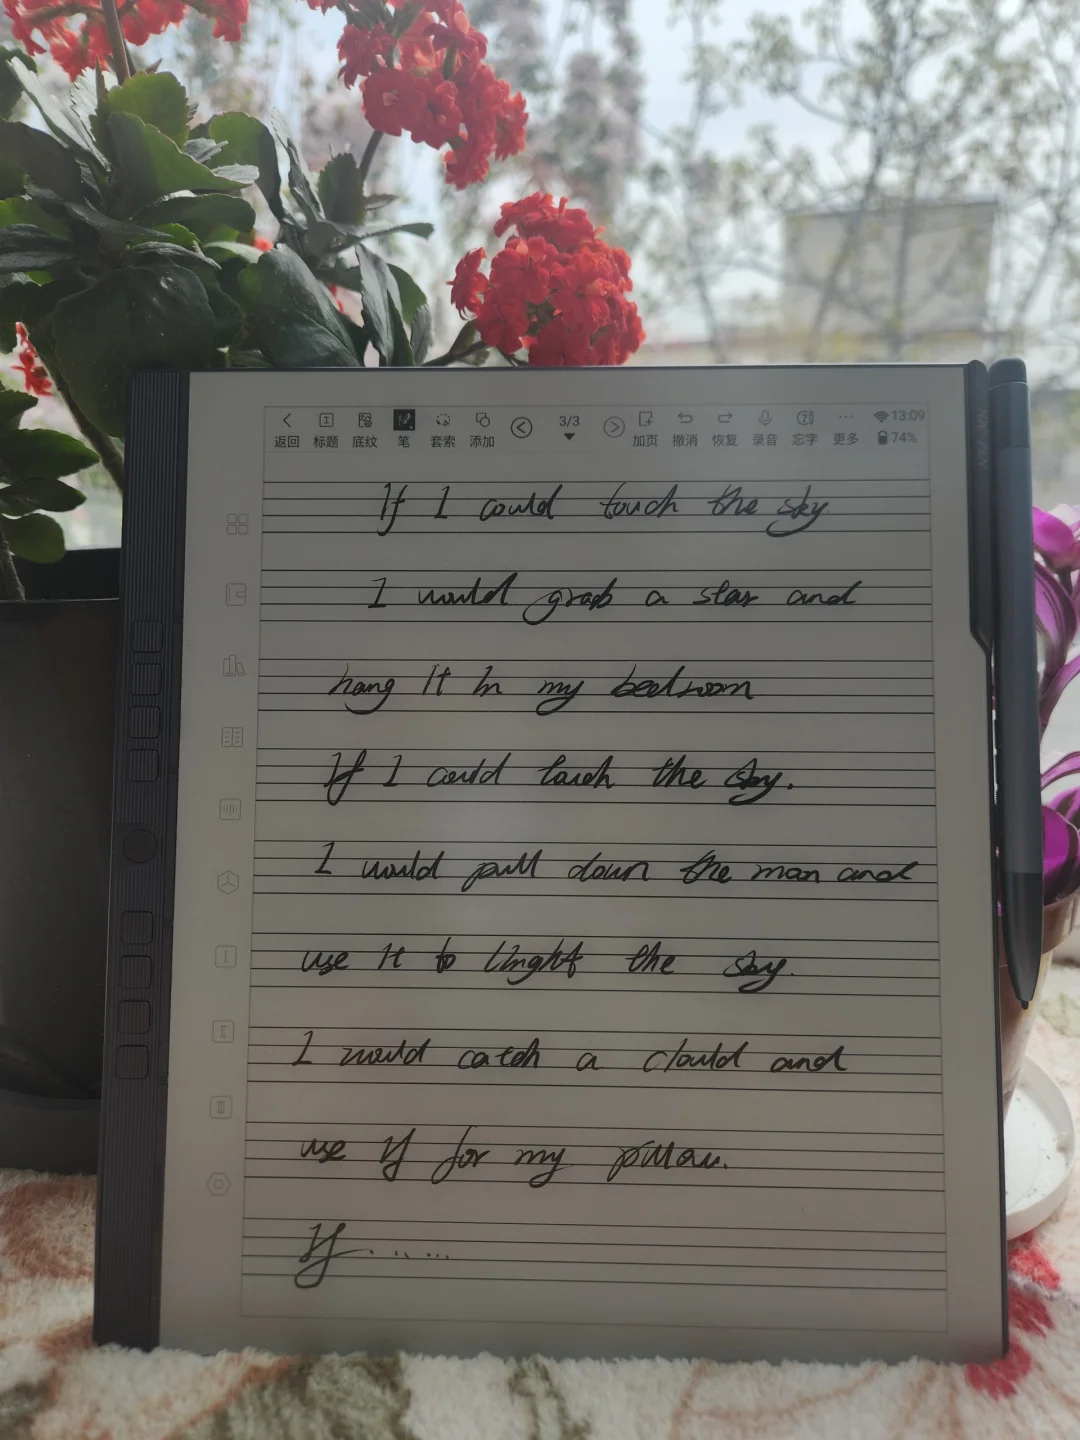 返回 标题 底纹 笔 套索 添加 3/3 加页 撤消 恢复 录音 忘字 更多 13:09 74%
If I could touch the sky
I would grab a star and
hang It In my bedroom
If I could touch the sky.
I would pull down the moon and
use It to LInght the sky.
I would catch a clould and
use If for my pillow.
If . .. ...